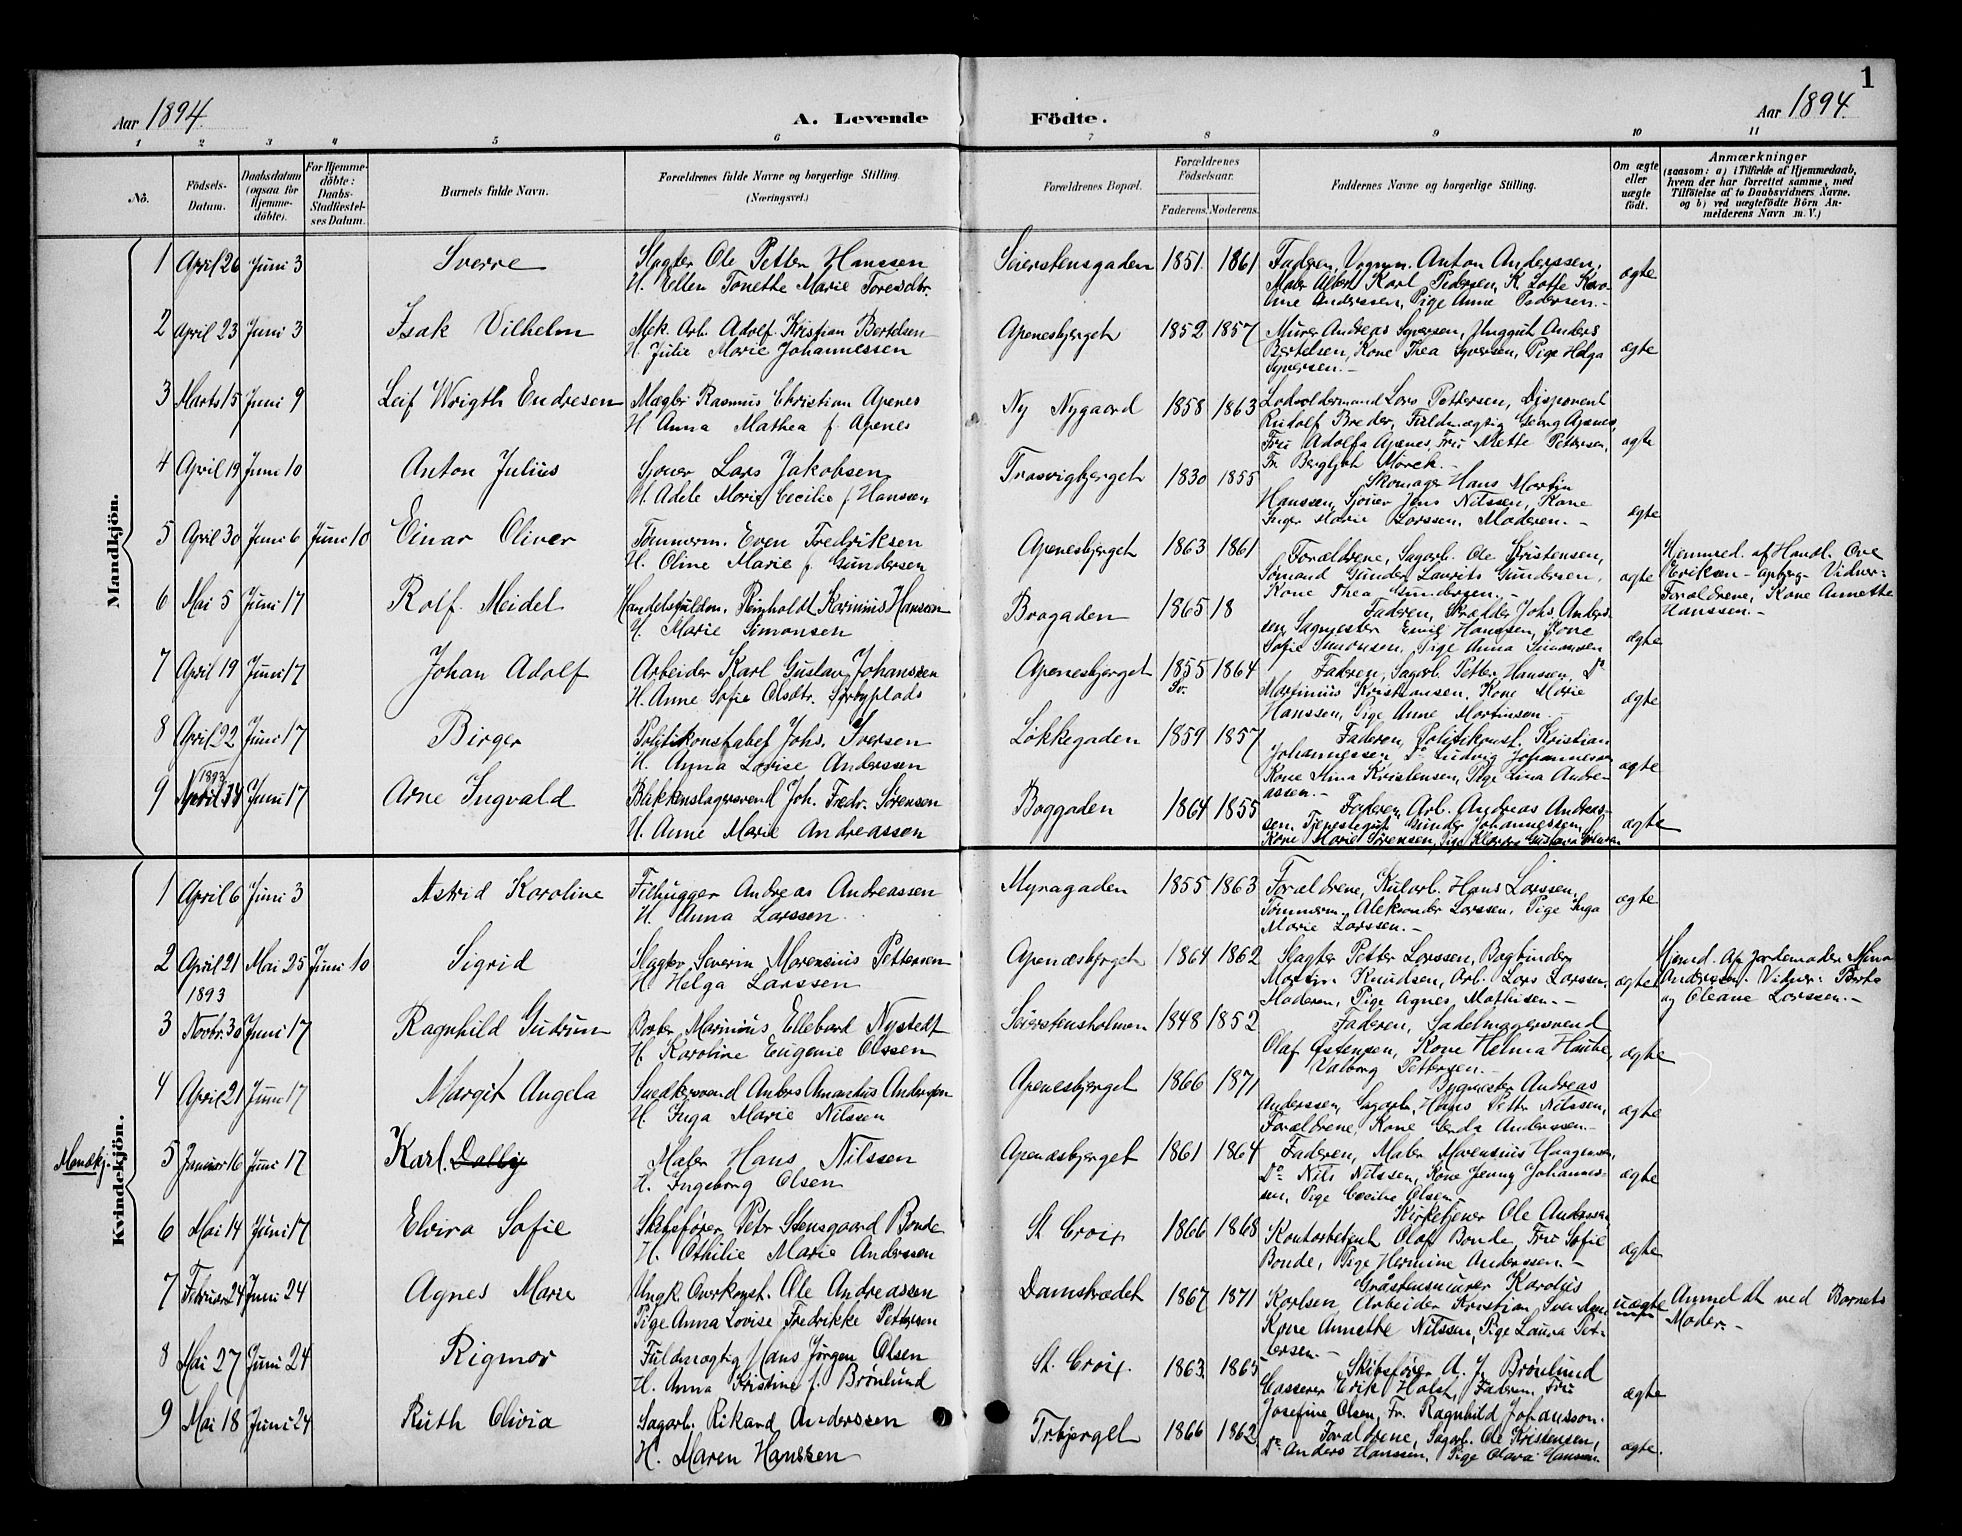 1
Aar 1894. A. Levende Födte. Aar 1894.
1 2 3 4 5 6 7 8 9 10 11
No. Födsels-Datum. Daabsdatum (ogsaa for Hjemme-döbte). For Hjemme-döbte: Daabs-Stadfæstel-ses Datum. Barnets fulde Navn. Forældrenes fulde Navne og borgerlige Stilling. (Næringsvei.) Forældrenes Bopæl. Forældrenes Födselsaar. Faderens. Moderens. Faddernes Navne og borgerlige Stilling. Om ægte eller uægte födt. Anmærkninger (saasom: a) i Tilfælde af Hjemmedaab, hvem der har forrettet samme, med Tilföielse af to Daabsvidners Navne, og b) ved uægtefödte Börn An-melderens Navn m. V.)
Mandkjön.
1 April 26 Juni 3 Sverre Slagter Ole Petter Hanssen Seierstensgaden 1851 1861 Faderen, Vognm. Anton Anderssen,
H. Ellen Tonette Marie Toresdtr. Maler Albert Karl Pedersen, K. Lotte Karo-
line Anderssen, Pige Anne Pedersen.- ægte
2 April 23 Juni 3 Isak Vilhelm Mek. Arb. Adolf Kristian Bertelsen Apenesbjerget 1852 1857 Murer Andreas Syversen, Unggut Anders
H. Julie Marie Johannessen Bertelsen, Kone Thea Syversen, Pige Helga
Syversen.- ægte
3 Marts 15 Juni 9 Leif Wrigth Endresen Mægler Rasmus Christian Apenes Ny Nygaard 1858 1863 Lodsoldermand Lars Pettersen, Disponent
H. Anna Mathea f. Apenes Rudolf Breder, Fuldmægtig Georg Apenes,
Fru Adolfa Apenes, Fru Mette Pettersen,
Fr. Bergljot Mörck.- ægte
4 April 19 Juni 10 Anton Julius Sjöner Lars Jakobsen Trosvigbjerget 1830 1855 Skomager Hans Martin
H. Adele Marie Cecilie f. Hanssen Hanssen, Sjöner Jens Nilssen, Kone
Inger Marie Larssen, Moderen.- ægte
5 April 30 Juni 6 Juni 10 Einar Oliver Tömmerm. Even Fredriksen Apenesbjerget 1863 1861 Forældrene, Sagarb. Ole Kristensen,
H. Oline Marie f. Gundersen Sömand Gunder Laurits Gundersen,
Kone Thea Gundersen.- ægte
Hjemmed. af Handl. Ove
Eriksen - Vidner:
Forældrene, Kone Annette
Hanssen.-
6 Mai 5 Juni 17 Rolf Meidel Handelsfuldm. Reinholdt Karinius Hansen Bragaden 1865 18 Faderen, Skrædder Johs. Anders-
H. Marie Simonsen sen, Sagmester Emil Hanssen, Kone
Sofie Simonsen, Pige Anna Simonsen ægte
7 April 19 Juni 17 Johan Adolf Arbeider Karl Gustav Johanssen Apenesbjerget 1855 Sv. 1864 Faderen, Sagarb. Petter Hanssen, Do
H. Anne Sofie Olsdtr. Sörbyplads Martinius Kristiansen, Kone Marie
Hanssen, Pige Anne Martinsen.- ægte
8 April 22 Juni 17 Birger Politikonstabel Johs. Iversen Lökkegaden 1859 1857 Faderen, Politikonst. Kristian
H. Anna Lovise Anderssen Johannessen, Do Ludvig Johannessen
Kone Stina Kristensen, Pige Lina Andre-
assen.- ægte
9 1893 Juni 17 Arne Ingvald Blikkenslagersvend Joh. Fredr. Sörensen Boggaden 1864 1855 Faderen, Arb. Andreas Andreas-
H. Anne Marie Andreassen sen, Tjenestegut Gunder Johannessen,
Kone Marie Sörensen, Pige Gustava ægte
Kvindekjön.
1 April 6 Juni 3 Astrid Karoline Filhugger Andreas Andreassen Myragaden 1855 1863 Forældrene, Kularb. Hans Larssen,
H. Anna Larssen Tömmerm. Aleksander Larssen, Pige Inga
Marie Larssen.- ægte
2 April 21 Mai 25 Juni 10 Sigrid Slagter Severin Morensius Pettersen Apenæsbjerget 1864 1862 Slagter Petter Larssen, Bogbinder
H. Helga Larssen Martin Knudsen, Arb. Lars Larssen
Moderen, Pige Agnes Mathisen.- ægte
Hjemd. Af Jordemoder Mina
Andresen. Vidner: Berta
og Oleane Larssen.-
3 1893 Novbr. 30 Juni 17 Ragnhild Gudrun Marinius Ellebard Nystedt Seierstensholmen 1848 1852 Faderen, Sadelmagersvend
H. Karoline Eugenie Olssen Olaf Östensen, Kone Helma
Valborg Pettersen.- ægte
4 April 21 Juni 17 Margit Angela Snedkersvend Anders Amantius Andersen Apenesbjerget 1866 1871 Bygmester Andreas
H. Inga Marie Nilssen Anderssen, Sagarb. Hans Petter Nilssen,
Forældrene, Kone Gerda Anderssen.- ægte
Mandkj. 5 Januar 16 Juni 17 Karl. Dalby Maler Hans Nilssen Apenæsbjerget 1861 1864 Faderen, Maler Morensius Haagensen,
H. Ingeborg Olsen Do Nils Nilssen, Kone Jenny Johannes-
sen, Pige Cecilie Olsen.- ægte
6 Mai 14 Juni 17 Elvira Sofie Skibsförer Petr Stensgaard Bonde St Croix 1866 1868 Kirketjener Ole Andersen
H. Othilie Marie Andersen Kontorbetjent Olaf Bonde, Fru Sofie
Bonde, Pige Hermine Anderssen.- ægte
7 Februar 24 Juni 24 Agnes Marie Ungk. Overkonst. Ole Andreassen Damstrædet 1867 1871 Gråstensmurer Karolus
Pige Anna Lovise Fredrikke Pettersen Karlsen, Arbeider Kristian Svendsen
Kone Annethe Nilssen, Pige Laura Pet-
tersen.- uægte Anmeldt ved Barnets
Moder.-
8 Mai 27 Juni 24 Rigmor Fuldmægtig Hans Jörgen Olsen St. Croix. 1863 1865 Skibsförer A. J. Brönlund
H. Anna Kristine f. Brönlund Casserer Erik Holst, Faderen, Fru
Josefine Olsen, Fr. Ragnhild Johansson. ægte
9 Mai 18 Juni 24 Ruth Olivia Sagarb. Rikard Anderssen Tr.bjerget 1866 1862 Forældrene, Sagarb. Ole Kristensen,
H. Maren Hanssen Do Anders Hanssen, Pige Olava Hanssen. ægte.